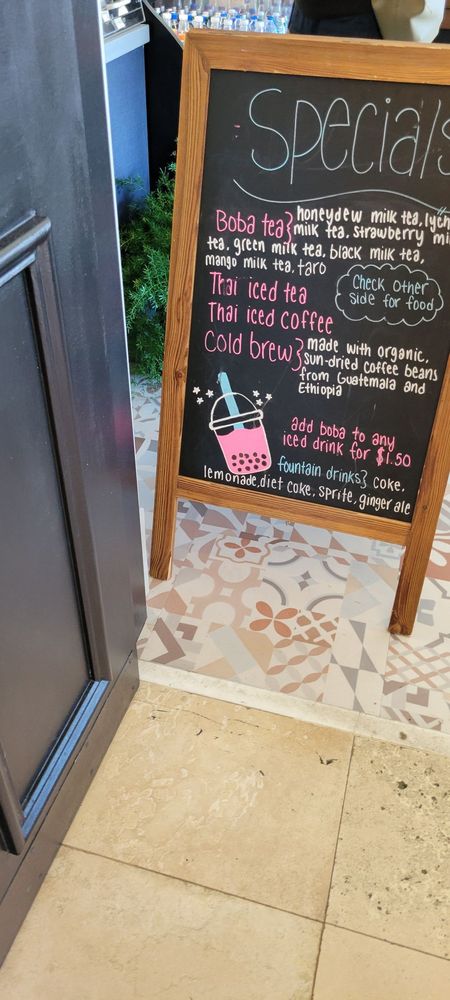 Specials
Boba tea} honeydew milk tea, lych
milk tea, strawberry mi
tea, green milk tea, black milk tea,
mango milk tea, taro
Check other
side for food
Thai iced tea
Thai iced coffee
Cold brew} made with organic,
sun-dried coffee beans
from Guatemala and
Ethiopia
add boba to any
iced drink for $1.50
fountain drinks} coke,
lemonade, diet coke, sprite, ginger ale